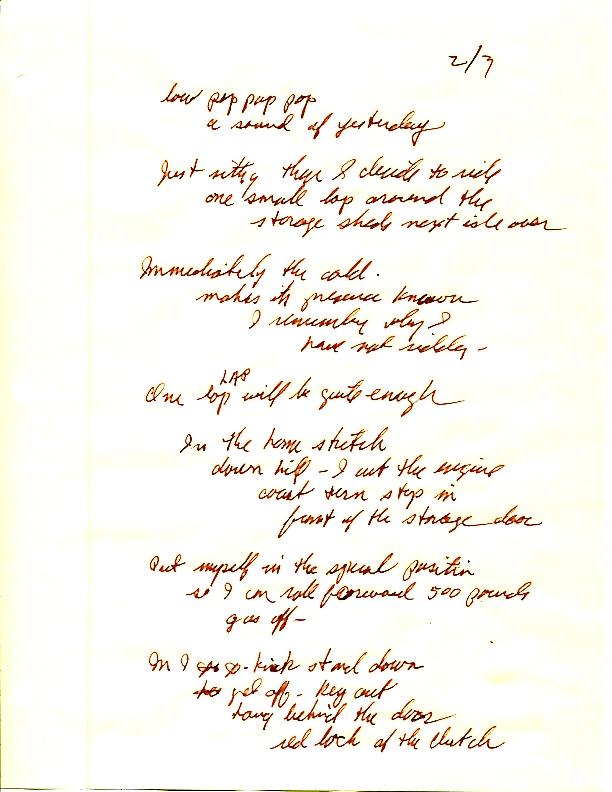 2/3
low pop pop pop
a sound of yesterday
Just sitting there I decide to ride
one small lap around the
storage sheds next isle over
Immediately the cold.
makes its presence known
I remember why I
have not ridden -
LAP
One lap will be quite enough
In the home stretch
down hill - I cut the engine
coast turn stop in
front of the storage door
Put myself in the special position
so I can roll forward 500 pounds
gas off -
In I go - kick stand down
get off - Key out
behind the door
red lock at the clutch